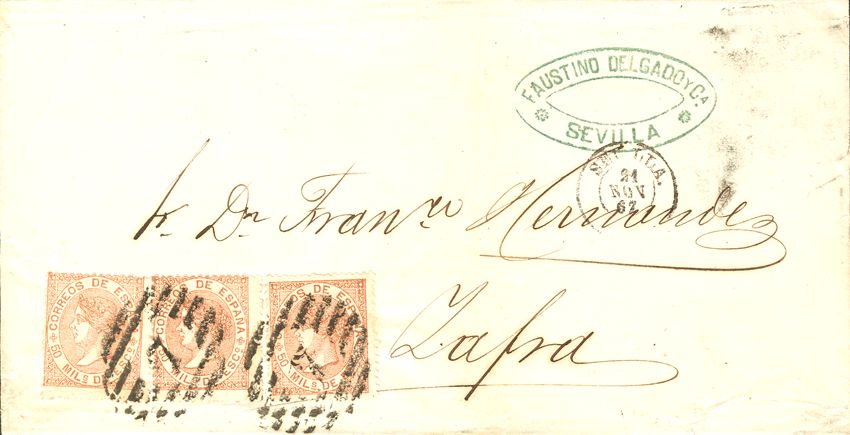 FAUSTINO DELGADO Y CA
SEVILLA
SEVILLA.
21
NOV
67
Sr. Dn Franco Hernandez
Zafra
CORREOS DE ESPAÑA
50 MILS DE ESCO
CORREOS DE ESPAÑA
50 MILS DE ESCO
CORREOS DE ESPAÑA
50 MILS DE